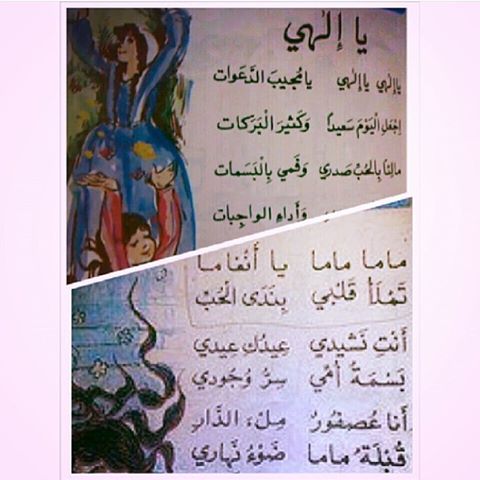 يا إِلٰهي
يا إِلٰهي يا إِلٰهي يا مُجيبَ الدَّعَوات
اِجْعَلِ الْيَوْمَ سَعيداً وَكَثيرَ الْبَرَكات
مالِئاً بِالحُبِّ صَدْري وَفَمي بِالْبَسَمات
وَأَداءِ الواجِبات
ماما ماما يا أَنْغاما
تَمْلَأُ قَلْبي بِنَدَى الْحُبِّ
أَنْتِ نَشيدي عِيدُكِ عيدي
بَسْمَةُ أُمّي سِرُّ وُجُودي
أَنا عُصفورُ مِلْءُ الدَّارِ
قُبْلَةُ ماما ضَوْءُ نَهاري